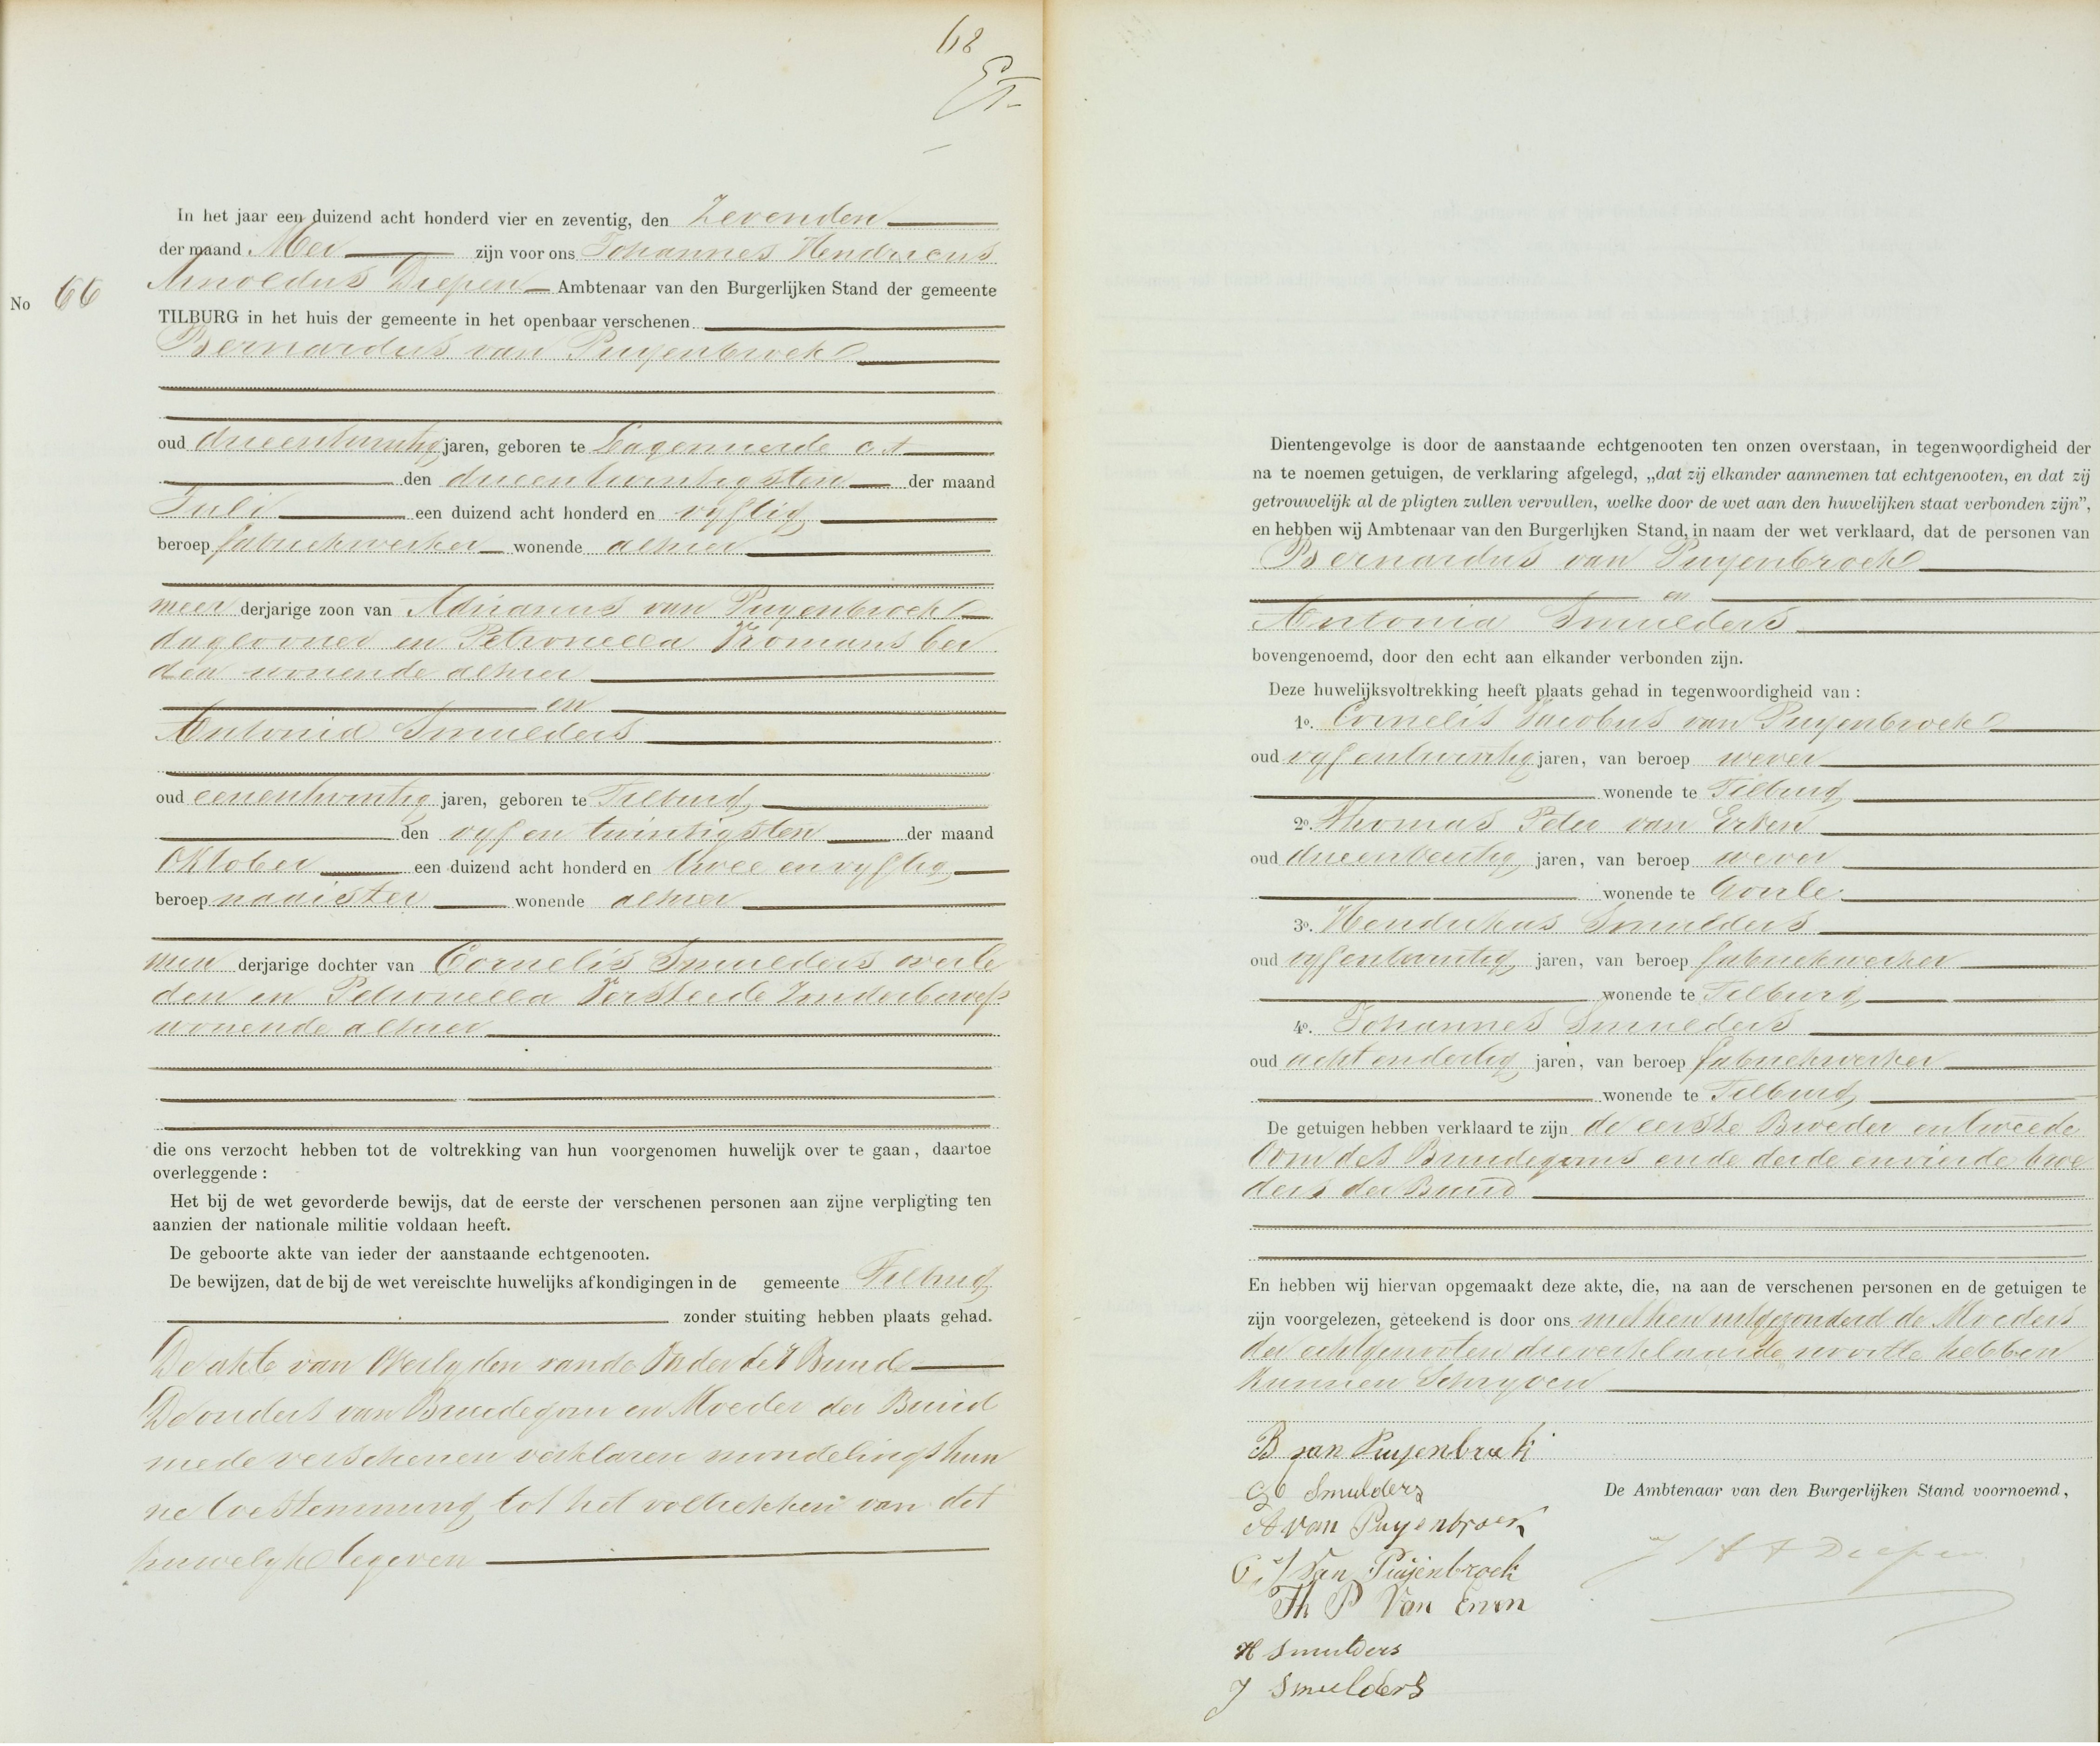 68
In het jaar een duizend acht honderd vier en zeventig, den Zevenden
der maand Mei zijn voor ons Johannes Hendricus
No 66 Arnoldus Diepen Ambtenaar van den Burgerlijken Stand der gemeente
TILBURG in het huis der gemeente in het openbaar verschenen
Bernardus van Puyenbroek
oud drieentwintig jaren, geboren te Lagemierde c.a.
den drieentwintigsten der maand
Juli een duizend acht honderd en vyftig
beroep fabriekwerker wonende alhier
meer derjarige zoon van Adrianus van Puyenbroek
daglooner en Petronella Vromans bei
den wonende alhier
en
Antonia Smulders
oud eenentwintig jaren, geboren te Tilburg
den vyf en twintigsten der maand
Oktober een duizend acht honderd en twee en vyftig
beroep naaister wonende alhier
min derjarige dochter van Cornelis Smulders overle
den en Petronella Versteede zonder beroep
wonende alhier
die ons verzocht hebben tot de voltrekking van hun voorgenomen huwelijk over te gaan, daartoe
overleggende :
Het bij de wet gevorderde bewijs, dat de eerste der verschenen personen aan zijne verpligting ten
aanzien der nationale militie voldaan heeft.
De geboorte akte van ieder der aanstaande echtgenooten.
De bewijzen, dat de bij de wet vereischte huwelijks afkondigingen in de gemeente Tilburg
zonder stuiting hebben plaats gehad.
De akte van Overlyden van de Vader der Bruid
De ouders van Bruidegom en Moeder der Bruid
mede verschenen verklaren mondelings hun
ne toestemming tot het voltrekken van dit
huwelyk te geven
Dientengevolge is door de aanstaande echtgenooten ten onzen overstaan, in tegenwoordigheid der
na te noemen getuigen, de verklaring afgelegd, „dat zij elkander aannemen tat echtgenooten, en dat zij
getrouwelijk al de pligten zullen vervullen, welke door de wet aan den huwelijken staat verbonden zijn”,
en hebben wij Ambtenaar van den Burgerlijken Stand, in naam der wet verklaard, dat de personen van
Bernardus van Puyenbroek
en
Antonia Smulders
bovengenoemd, door den echt aan elkander verbonden zijn.
Deze huwelijksvoltrekking heeft plaats gehad in tegenwoordigheid van :
1o. Cornelis Jacobus van Puyenbroek
oud vyfentwintig jaren, van beroep wever
wonende te Tilburg
2o. Thomas Peter van Erven
oud drieenveertig jaren, van beroep wever
wonende te Goirle
3o. Hendrikus Smulders
oud vyfentwintig jaren, van beroep fabriekwerker
wonende te Tilburg
4o. Johannes Smulders
oud achtendertig jaren, van beroep fabriekwerker
wonende te Tilburg
De getuigen hebben verklaard te zijn de eerste Broeder en tweede
Oom des Bruidegoms en de derde en vierde broe
ders der Bruid
En hebben wij hiervan opgemaakt deze akte, die, na aan de verschenen personen en de getuigen te
zijn voorgelezen, geteekend is door ons met hen uitgezonderd de Moeders
der echtgenooten die verklaarde nooit te hebben
kunnen Schryven
B van Puyenbroek
Smulders
De Ambtenaar van den Burgerlijken Stand voornoemd,
A van Puyenbroek
C. J Van Puijenbroek
J H A Diepen
Th P Van Erven
H Smulders
J Smulders